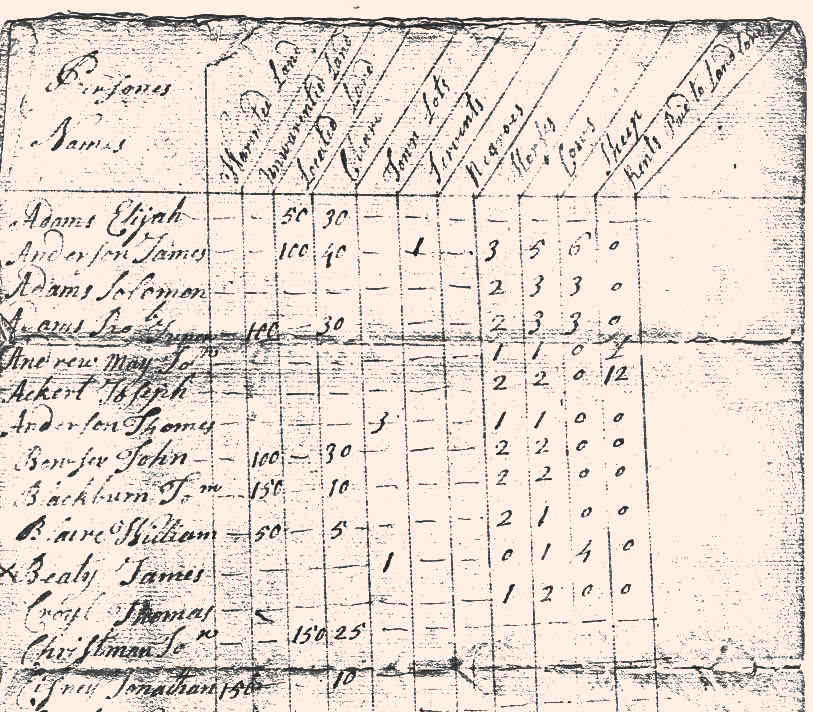 Persones Names Warrented Land Unwarrented Land Located Land Cleare Town Lots Servents Negroes Horses Cows Sheep Rents Paid to Land Lords
Adams Elijah — — 50 30 — — —
Anderson James — — 100 40 — 1 — 3 5 6 0
Adams Solomon — — — — — — — 2 3 3 0
Adams Rob — 100 — 30 — — — 2 3 3 0
Andrew May Jo — — — — — — — 1 1 0 2
Ackert Joseph — — — — — — — 2 2 0 12
Anderson Thomes — — — — 3 — — 1 1 0 0
Bowser John — 100 — 30 — — — 2 2 0 0
Blackburn Tom — 150 — 10 — — — 2 2 0 0
Blaire William — 50 — 5 — — — 2 1 0 0
Bealy James — — — — 1 — — 0 1 4 0
Croyl Thomas — — — — — — 1 2 0 0
Christman Jo — — 150 25 — — —
Cisney Jonathan 150 10